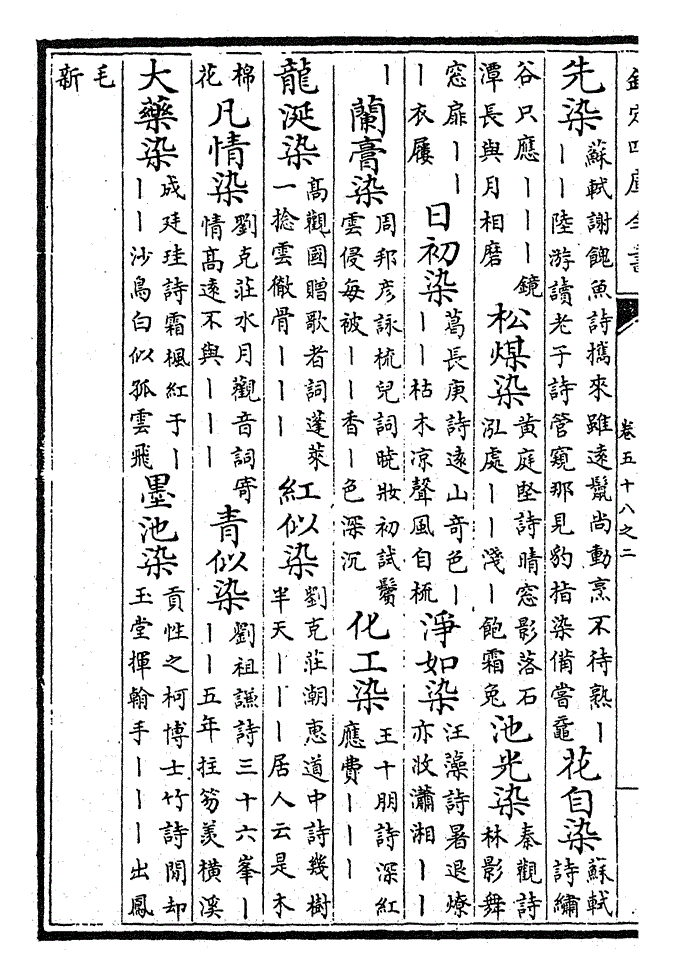 欽定四庫全書 卷五十八之二
先染
蘇軾謝魚詩攜來雖遠鬣尚動烹不待熟丨
丨丨陸游讀老子詩管窺那見豹指染僃嘗黿
花自染
蘇軾
詩繡
谷只應丨丨丨鏡
潭長與月相磨
松煤染
黃庭堅詩晴窓影落石
泓處丨丨淺丨飽霜兔
池光染
秦觀詩
林影舞
窓扉丨丨
丨衣屨
日初染
葛長庚詩遠山奇色丨
丨丨枯木凉聲風自梳
淨如染
汪藻詩暑退燎
亦收瀟湘丨丨
丨
蘭膏染
周邦彦詠梳兒詞曉妝初試鬢
雲侵每被丨丨香丨色深沉
化工染
王十朋詩深紅
應費丨丨丨
龍涎染
高觀國贈歌者詞蓬萊
一捻雲徹骨丨丨丨
紅似染
劉克莊潮惠道中詩幾樹
半天丨丨丨居人云是木
棉
花
凡情染
劉克莊水月觀音詞寄
情高遠不與丨丨丨
青似染
劉祖謙詩三十六峯丨
丨丨五年拄笏羡橫溪
大藥染
成廷珪詩霜楓紅于丨
丨丨沙鳥白似孤雲飛
墨池染
貢性之柯博士竹詩閒却
玉堂揮翰手丨丨丨出鳳
毛
新